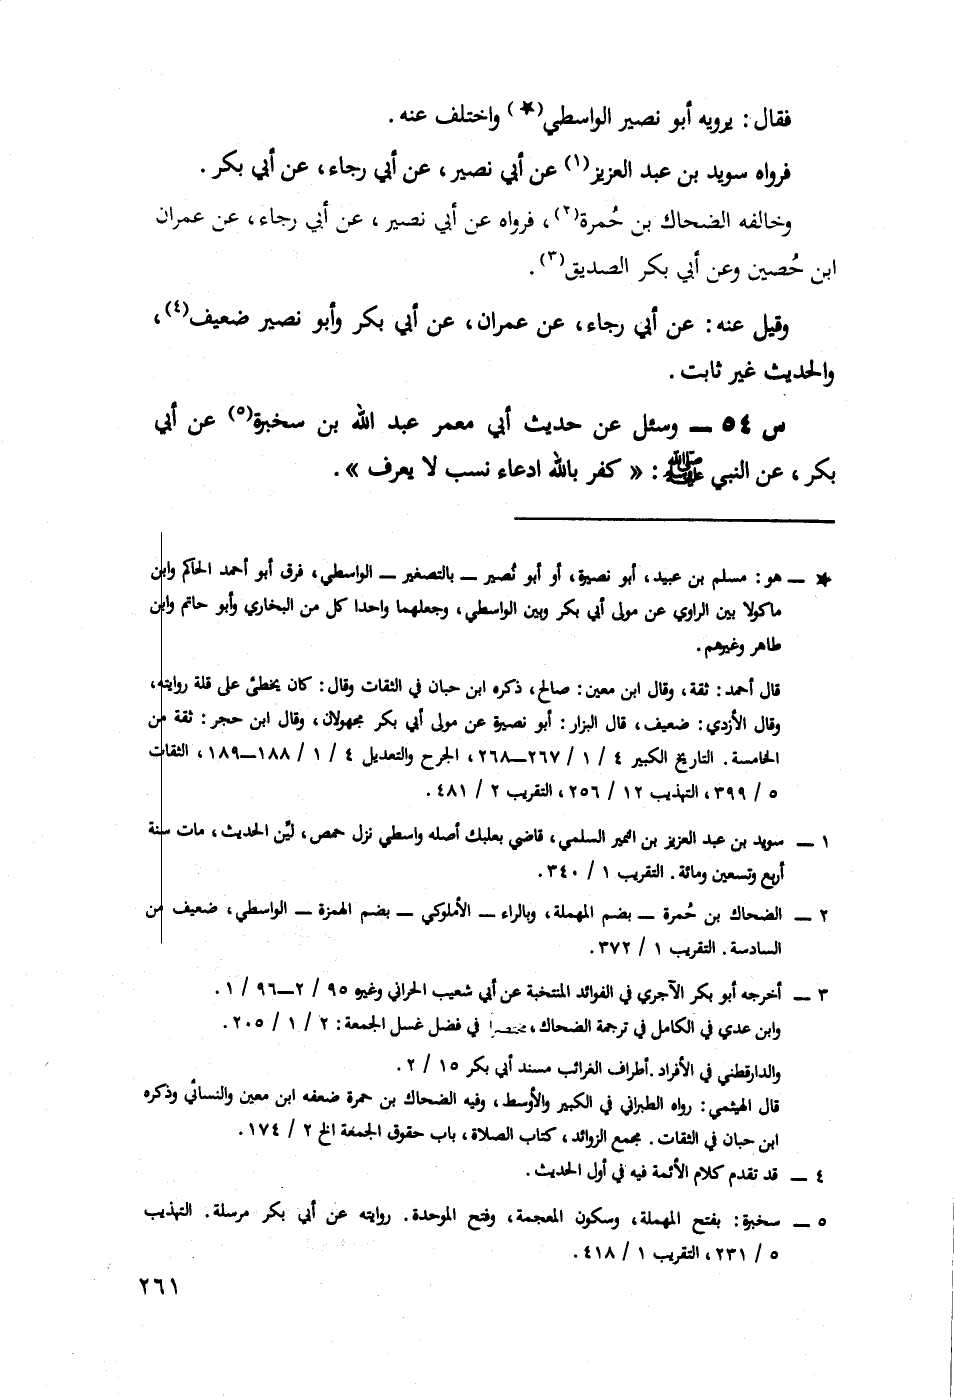 فقال : يرويه أبو نصير الواسطي(★) واختلف عنه .
فرواه سويد بن عبد العزيز(١) عن أبي نصير ، عن أبي رجاء ، عن أبي بكر .
وخالفه الضحاك بن حُمرة(٢) ، فرواه عن أبي نصير ، عن أبي رجاء ، عن عمران
ابن حُصين وعن أبي بكر الصديق(٣) .
وقيل عنه : عن أبي رجاء ، عن عمران ، عن أبي بكر وأبو نصير ضعيف(٤) ،
والحديث غير ثابت .
س ٥٤ ــ وسئل عن حديث أبي معمر عبد الله بن سخبرة(٥) عن أبي
بكر ، عن النبي ﷺ : « كفر بالله ادعاء نسب لا يعرف » .
★ ــ هو : مسلم بن عبيد ، أبو نصيرة ، أو أبو نُصير ــ بالتصغير ــ الواسطي ، فرق أبو أحمد الحاكم وابن
ماكولا بين الراوي عن مولى أبي بكر وبين الواسطي ، وجعلهما واحدا كل من البخاري وأبو حاتم وابن
طاهر وغيرهم .
قال أحمد : ثقة ، وقال ابن معين : صالح ، ذكره ابن حبان في الثقات وقال : كان يخطئ على قلة روايته ،
وقال الأزدي : ضعيف ، قال البزار : أبو نصيرة عن مولى أبي بكر مجهولان ، وقال ابن حجر : ثقة من
الخامسة . التاريخ الكبير ٤ / ١ / ٢٦٧ــ٢٦٨ ، الجرح والتعديل ٤ / ١ / ١٨٨ــ١٨٩ ، الثقات
٥ / ٣٩٩ ، التهذيب ١٢ / ٢٥٦ ، التقريب ٢ / ٤٨١ .
١ ــ سويد بن عبد العزيز بن النمير السلمي ، قاضي بعلبك أصله واسطي نزل حمص ، ليّن الحديث ، مات سنة
أربع وتسعين ومائة . التقريب ١ / ٣٤٠ .
٢ ــ الضحاك بن حُمرة ــ بضم المهملة ، وبالراء ــ الأملوكي ــ بضم الهمزة ــ الواسطي ، ضعيف من
السادسة . التقريب ١ / ٣٧٢ .
٣ ــ أخرجه أبو بكر الآجري في الفوائد المنتخبة عن أبي شعيب الحراني وغيره ٩٥ / ٢ــ٩٦ / ١ .
وابن عدي في الكامل في ترجمة الضحاك ، مختصرا في فضل غسل الجمعة : ٢ / ١ / ٢٠٥ .
والدارقطني في الأفراد . أطراف الغرائب مسند أبي بكر ١٥ / ٢ .
قال الهيثمي : رواه الطبراني في الكبير والأوسط ، وفيه الضحاك بن حمرة ضعفه ابن معين والنسائي وذكره
ابن حبان في الثقات . مجمع الزوائد ، كتاب الصلاة ، باب حقوق الجمعة الخ ٢ / ١٧٤ .
٤ ــ قد تقدم كلام الأئمة فيه في أول الحديث .
٥ ــ سخبرة : بفتح المهملة ، وسكون المعجمة ، وفتح الموحدة . روايته عن أبي بكر مرسلة . التهذيب
٥ / ٢٣١ ، التقريب ١ / ٤١٨ .
٢٦١